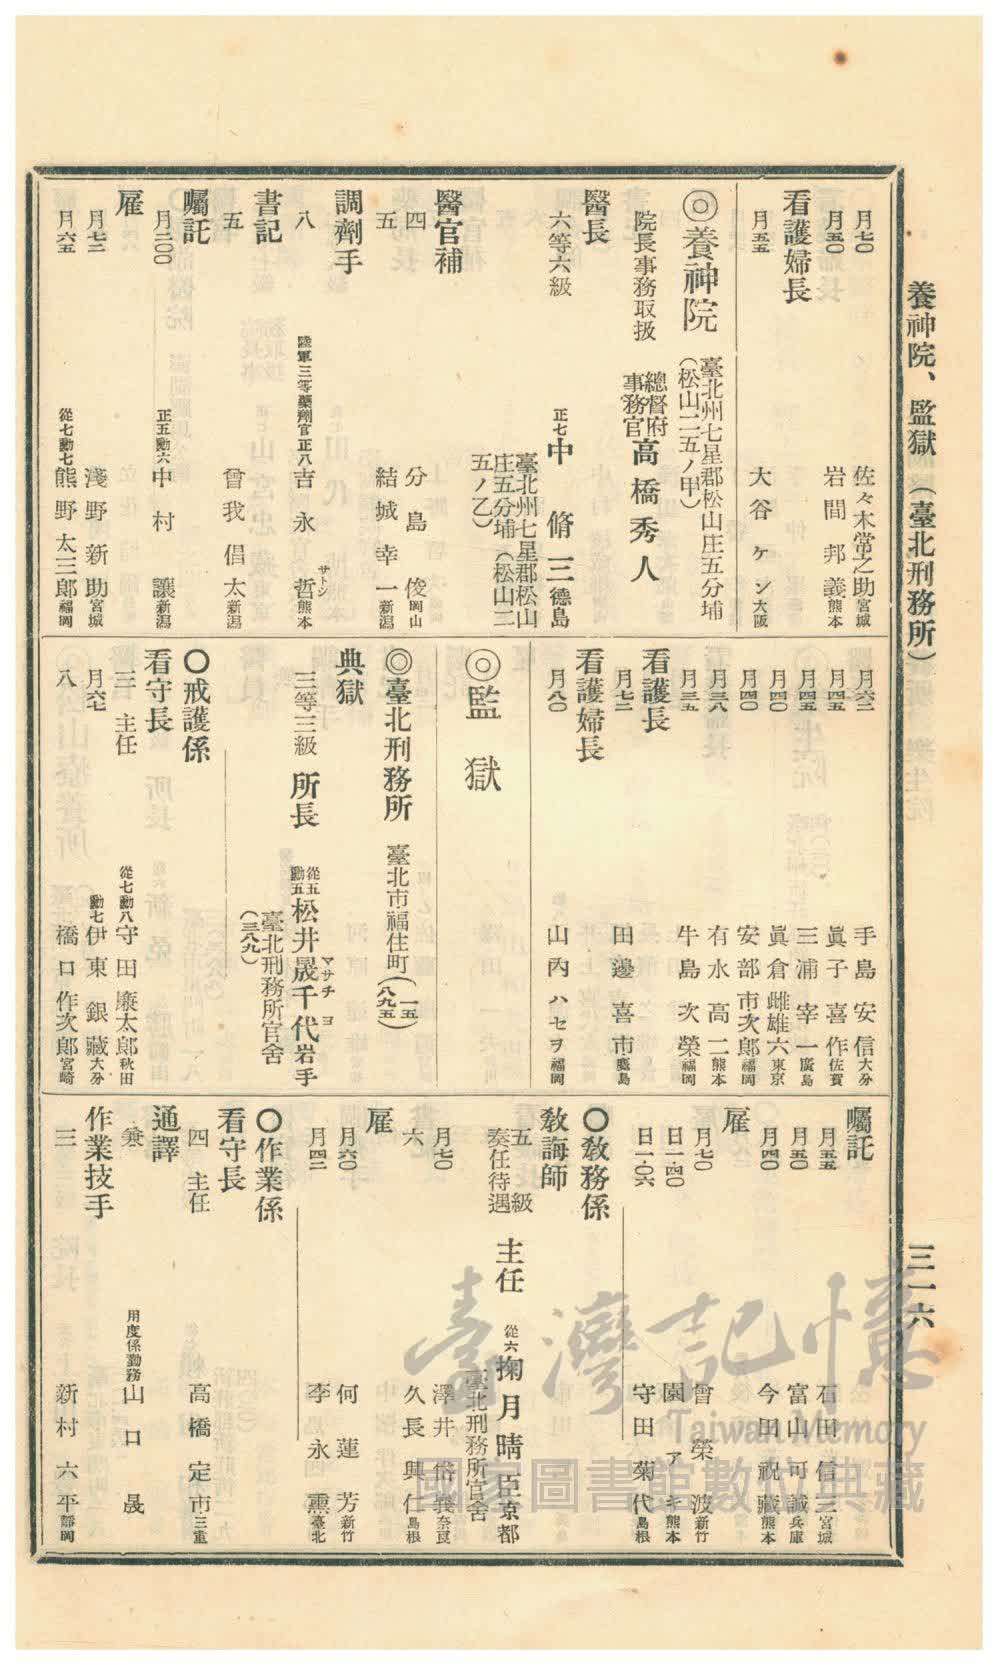 養神院、監獄（臺北刑務所）
三一六
月七〇　佐々木常之助宮城
月五〇　岩間邦義熊本
看護婦長
月五五　大谷ケン大阪
◎養神院　臺北州七星郡松山庄五分埔
（松山二五ノ甲）
院長事務取扱　總督府
事務官　高橋秀人
醫長
六等六級　正七　中脩三德島
臺北州七星郡松山
庄五分埔（松山三
五ノ乙）
醫官補
四　分島俊岡山
五　結城幸一新潟
調劑手
八　陸軍三等藥劑官正八　吉永哲サトシ熊本
書記
五　曾我倡太新潟
囑託
月二〇〇　正五勳六　中村讓新潟
雇
月七二　淺野新助宮城
月六五　從七勳七　熊野太三郎福岡
月六二　手島安信大分
月四五　眞子喜作佐賀
月四五　三浦宰一廣島
月四〇　眞倉雌雄六東京
月四〇　安部市次郎福岡
月三八　有水高二熊本
月三五　牛島次榮福岡
看護長
月七二　田邊喜市廣島
看護婦長
月八〇　山內ハセヲ福岡
◎監獄
◎臺北刑務所　臺北市福住町（一五
八九五）
典獄
三等三級　所長　從五
勳五　松井晟千代マサチヨ岩手
臺北刑務所官舍
（三八九）
〇戒護係
看守長
三　主任　從七勳八　守田廉太郎秋田
月六七　勳七　伊東銀藏大分
八　橋口作次郎宮崎
囑託
月五五　石田信三宮城
月五〇　富山可誠兵庫
月四〇　今田祝藏熊本
雇
月七〇　曾榮波新竹
日一・四〇　園アキ熊本
日一・〇六　守田菊代島根
〇敎務係
敎誨師
五級
奏任待遇　主任　從六　掬月晴臣京都
臺北刑務所官舍
月七〇　澤井岱義奈良
六　久長興仁島根
雇
月六〇　何蓮芳新竹
月四二　李永熏臺北
〇作業係
看守長
四　主任　高橋定市三重
通譯
兼　用度係勤務　山口晟
作業技手
三　新村六平靜岡
臺灣記憶
Taiwan Memory
國家圖書館數位典藏